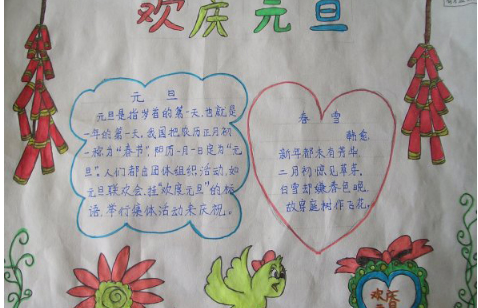 欢庆元旦
元 旦
元旦是指岁首的第一天，也就是
一年的第一天，我国把农历正月初
一称为“春节”，阳历一月一日定为“元
旦”，人们都由团体组织活动，如
元旦联欢会，挂“欢度元旦”的标
语，举行集体活动来庆祝。
春 雪
韩愈
新年都未有芳华，
二月初惊见草芽。
白雪却嫌春色晚，
故穿庭树作飞花。
欢庆